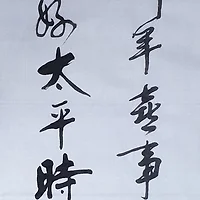 年喜事
好太平時